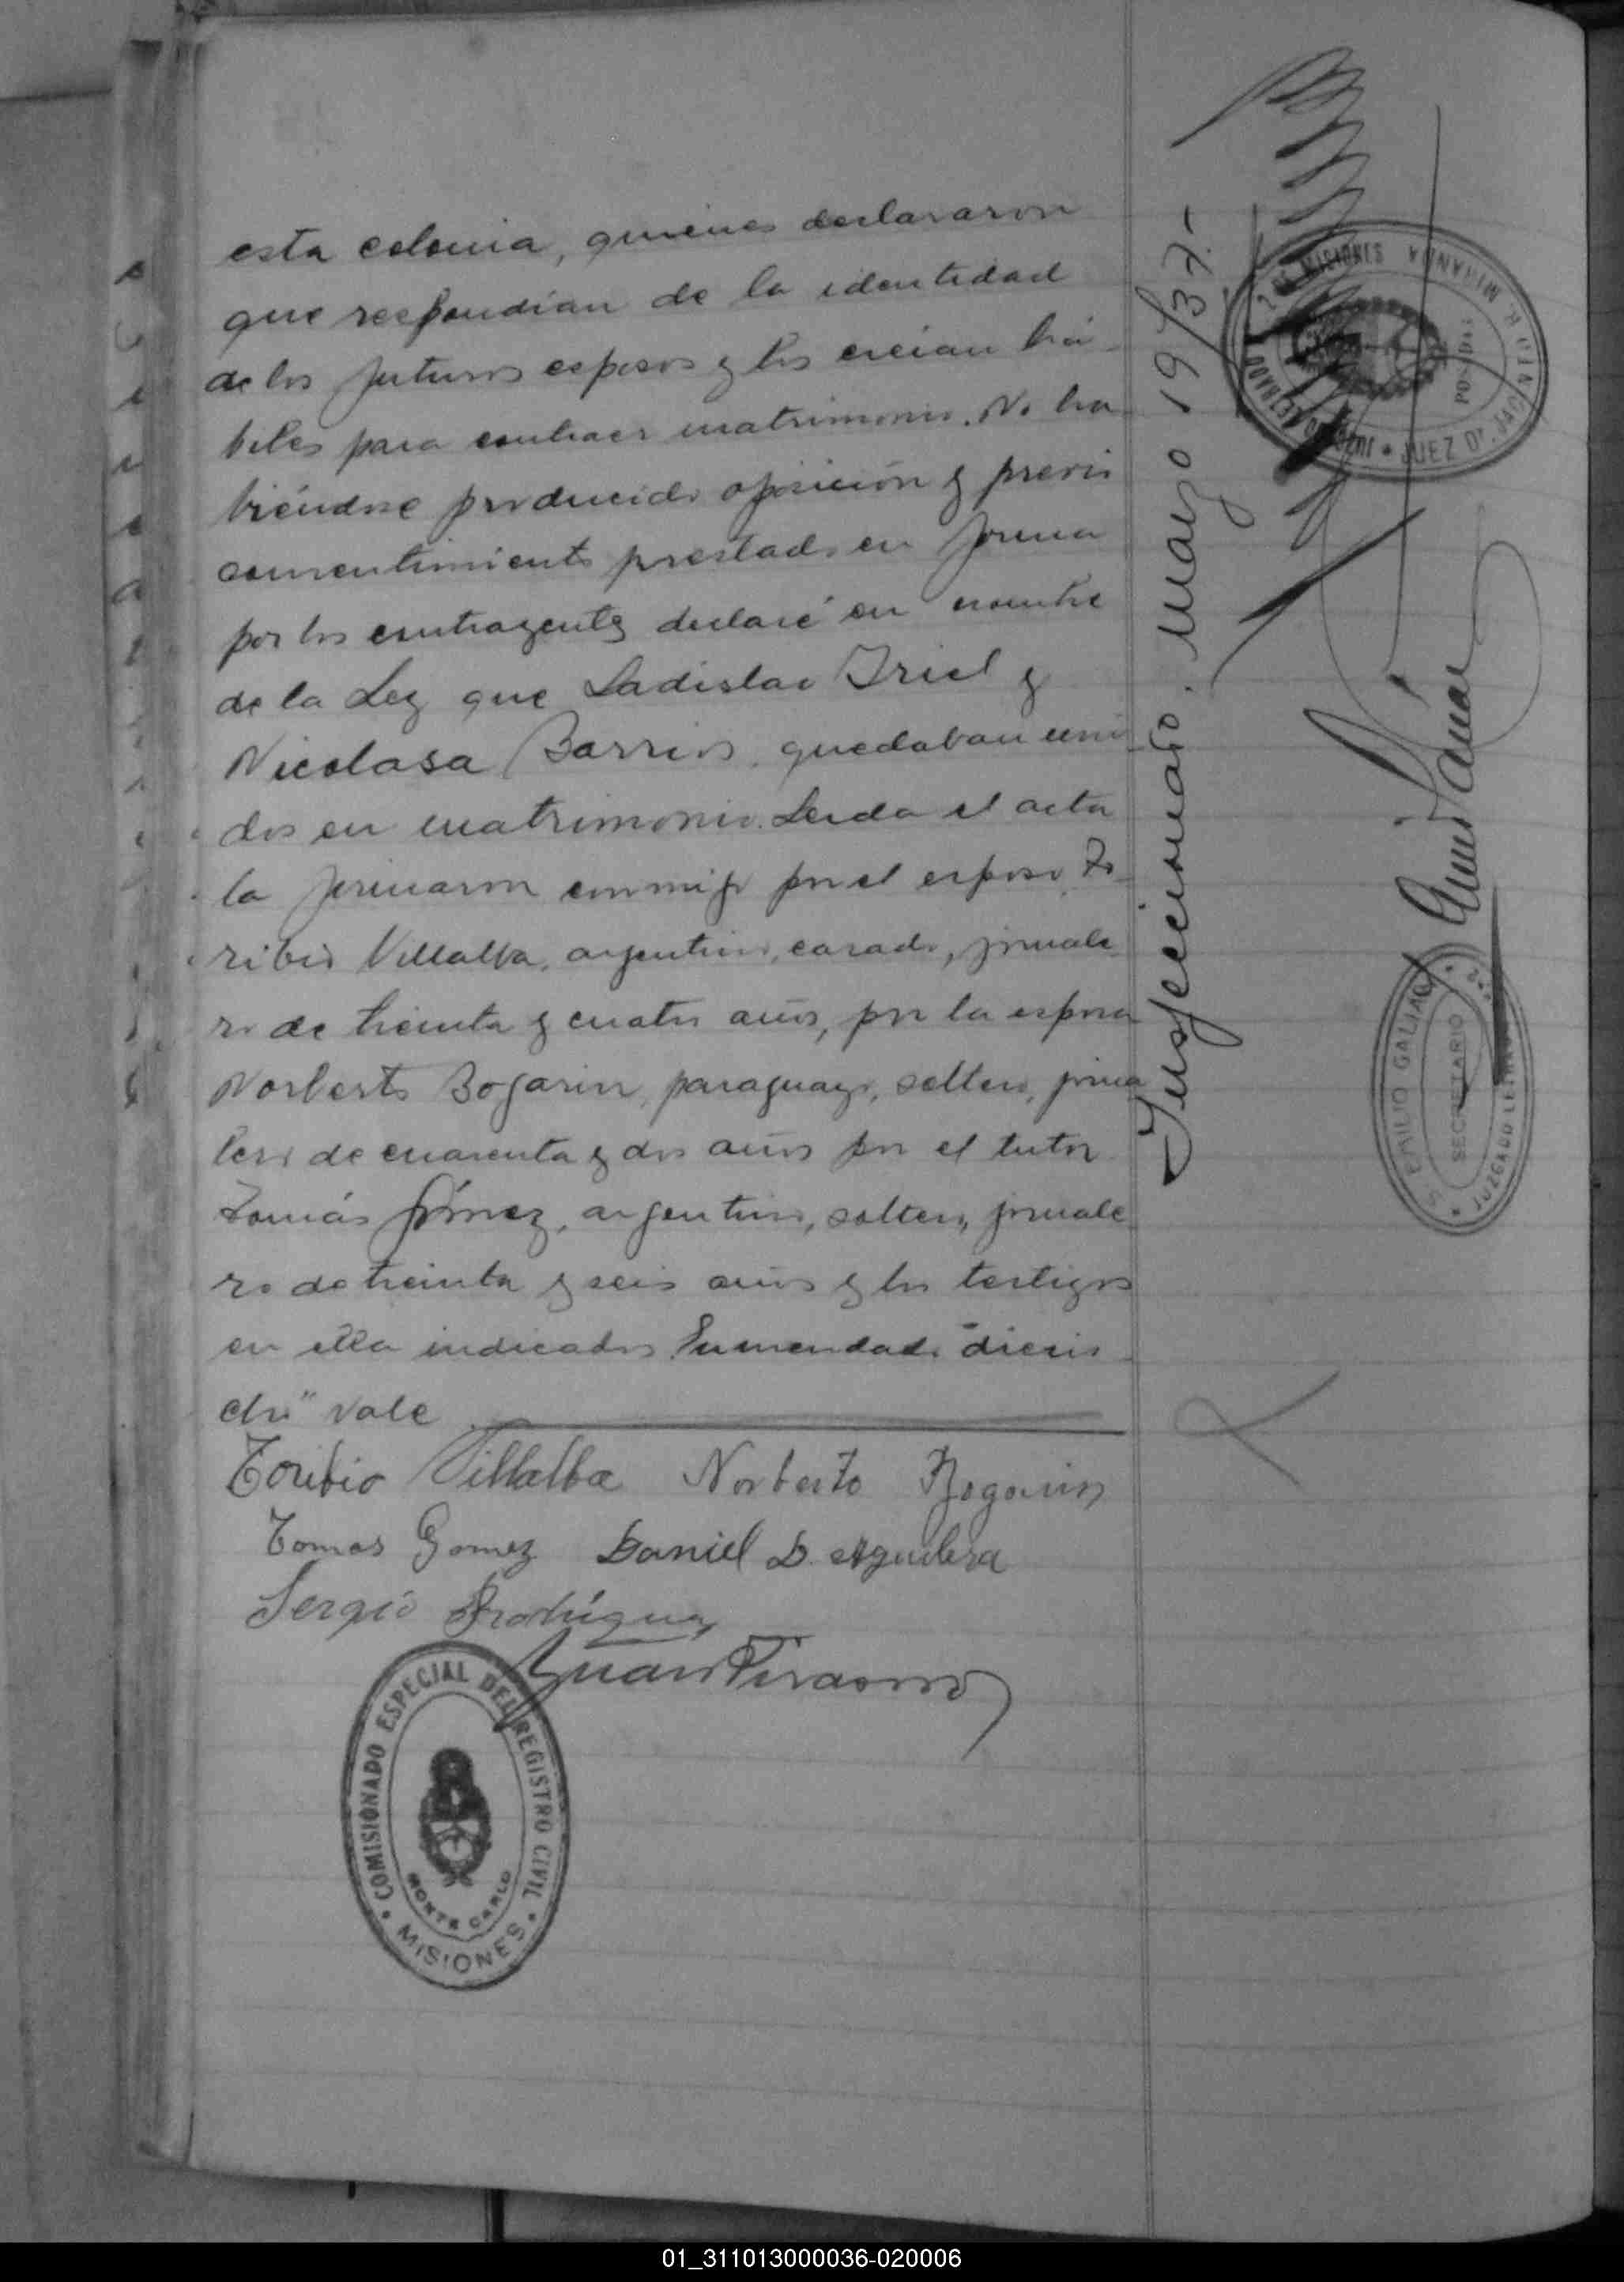 esta colonia, quienes declararon
que respondian de la identidad
de los futuros esposos y los creian há-
biles para contraer matrimonio. No ha-
biéndose producido oposición y previo
consentimiento prestado en forma
por los contrayentes declaré en nombre
de la Ley que Ladislao Friel y
Nicolasa Barrios, quedaban uni-
dos en matrimonio. Leida el acta
la firmaron conmigo por el esposo To-
ribio Villalba, argentino, casado, jornale-
ro de treinta y cuatro años, por la esposa
Norberto Bogarin, paraguayo, soltero, jorna
lero de cuarenta y dos años por el tutor
Tomás Gómez, argentino, soltero, jornale
ro de treinta y seis años y los testigos
en ella indicados. Enmendado "diesio
cho" vale
Toribio Villalba Norberto Bogarin
Tomas Gomez Daniel D. Aguilera
Sergio Rodriguez
COMISIONADO ESPECIAL DEL REGISTRO CIVIL
MONTE CARLO
MISIONES
Inspeccionado. Marzo 19/37.-
JUZGADO LETRADO MISIONES
JUEZ Dr. JACINTO R. MIRANDA
EMILIO GALIAN
SECRETARIO
JUZGADO LETRADO
01_311013000036-020006